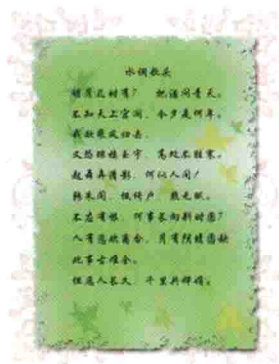 水调歌头
明月几时有？ 把酒问青天。
不知天上宫阙，今夕是何年。
我欲乘风归去，
又恐琼楼玉宇，高处不胜寒。
起舞弄清影，何似人间！
转朱阁，低绮户，照无眠。
不应有恨，何事长向别时圆？
人有悲欢离合，月有阴晴圆缺
此事古难全。
但愿人长久，千里共婵娟。